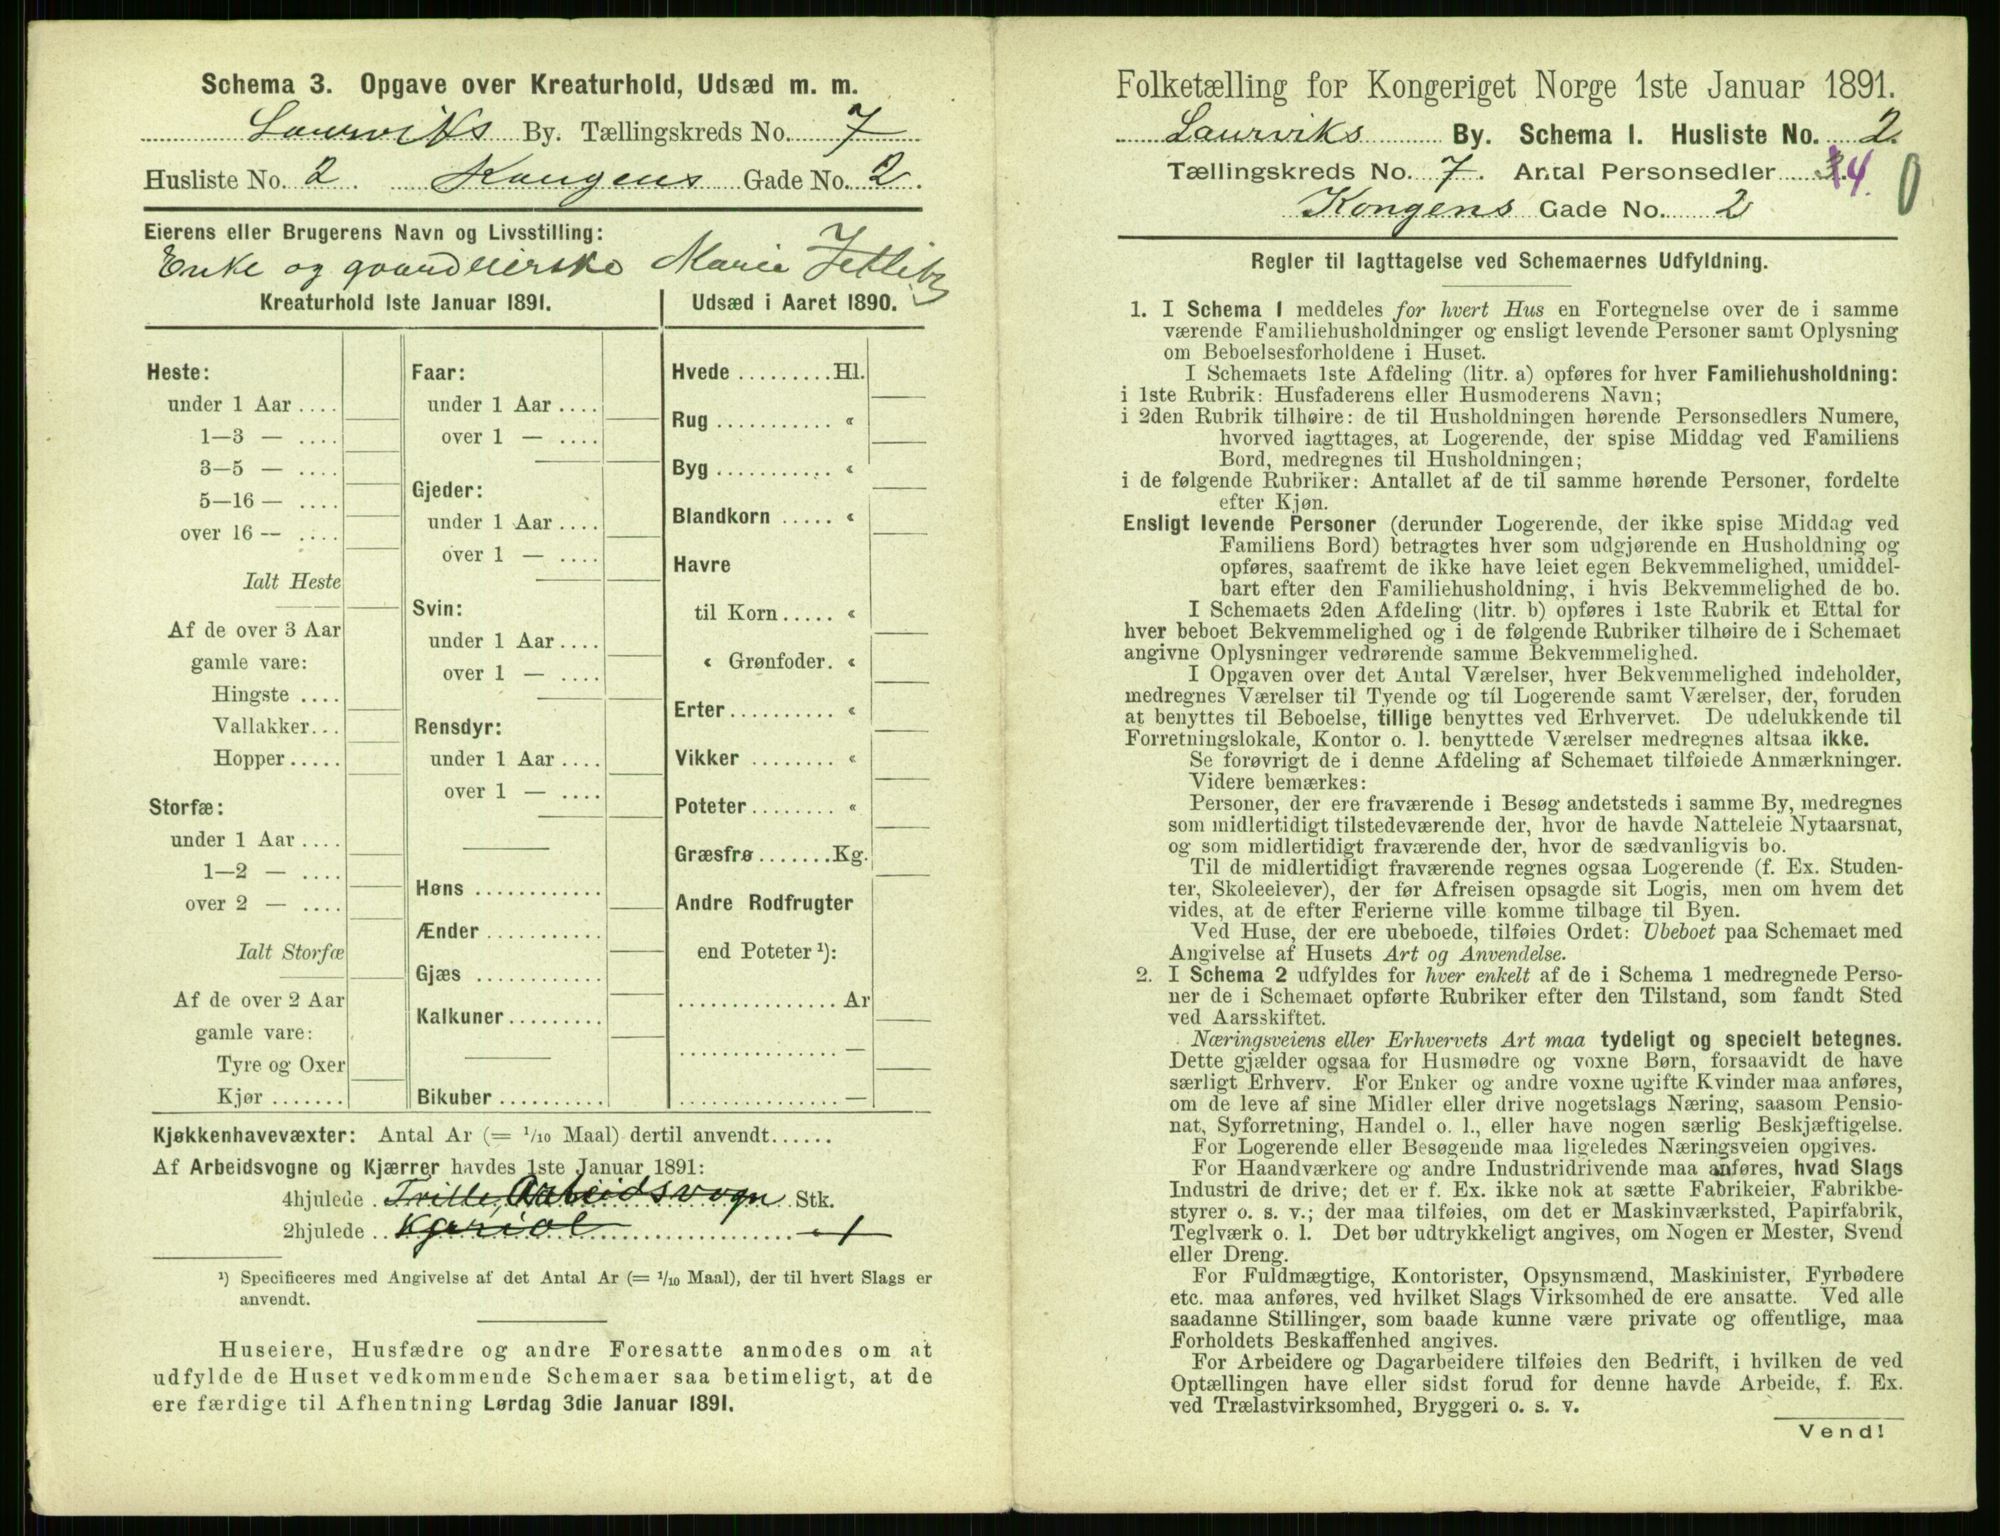 Schema 3. Opgave over Kreaturhold, Udsæd m. m.
Laurviks By. Tællingskreds No. 7
Husliste No. 2. Kongens Gade No. 2.
Eierens eller Brugerens Navn og Livsstilling:
Enke og gaardeierske Marie Jetlitz
Kreaturhold 1ste Januar 1891.
Heste:
under 1 Aar ....
1—3 — ....
3—5 — ....
5—16 — ....
over 16 — ....
Ialt Heste
Af de over 3 Aar
gamle vare:
Hingste ....
Vallakker...
Hopper.....
Storfæ:
under 1 Aar ....
1—2 — ....
over 2 — ....
Ialt Storfæ
Af de over 2 Aar
gamle vare:
Tyre og Oxer
Kjør .......
Faar:
under 1 Aar ....
over 1 — ....
Gjeder:
under 1 Aar ....
over 1 — ....
Svin:
under 1 Aar ....
over 1 — ....
Rensdyr:
under 1 Aar ....
over 1 — ....
Høns ............
Ænder ...........
Gjæs ............
Kalkuner .........
Bikuber ..........
Udsæd i Aaret 1890.
Hvede .........Hl.
Rug ........... «
Byg ........... «
Blandkorn ..... «
Havre
til Korn ..... «
« Grønfoder. «
Erter .......... «
Vikker ........ «
Poteter ........ «
Græsfrø .......Kg.
Andre Rodfrugter
end Poteter ¹):
............... Ar
............... —
............... —
Kjøkkenhavevæxter: Antal Ar (= 1/10 Maal) dertil anvendt......
Af Arbeidsvogne og Kjærrer havdes 1ste Januar 1891:
4hjulede . Trille, Arbeidsvogn Stk.
2hjulede .. Kjariol — 1
¹) Specificeres med Angivelse af det Antal Ar (= 1/10 Maal), der til hvert Slags er
anvendt.
Huseiere, Husfædre og andre Foresatte anmodes om at
udfylde de Huset vedkommende Schemaer saa betimeligt, at de
ere færdige til Afhentning Lørdag 3die Januar 1891.
Folketælling for Kongeriget Norge 1ste Januar 1891.
Laurviks By. Schema 1. Husliste No. 2.
Tællingskreds No. 7. Antal Personsedler 4. 0
Kongens Gade No. 2
Regler til Iagttagelse ved Schemaernes Udfyldning.
1. I Schema 1 meddeles for hvert Hus en Fortegnelse over de i samme
værende Familiehusholdninger og ensligt levende Personer samt Oplysning
om Beboelsesforholdene i Huset.
I Schemaets 1ste Afdeling (litr. a) opføres for hver Familiehusholdning:
i 1ste Rubrik: Husfaderens eller Husmoderens Navn;
i 2den Rubrik tilhøire: de til Husholdningen hørende Personsedlers Numere,
hvorved iagttages, at Logerende, der spise Middag ved Familiens
Bord, medregnes til Husholdningen;
i de følgende Rubriker: Antallet af de til samme hørende Personer, fordelte
efter Kjøn.
Ensligt levende Personer (derunder Logerende, der ikke spise Middag ved
Familiens Bord) betragtes hver som udgjørende en Husholdning og
opføres, saafremt de ikke have leiet egen Bekvemmelighed, umiddel-
bart efter den Familiehusholdning, i hvis Bekvemmelighed de bo.
I Schemaets 2den Afdeling (litr. b) opføres i 1ste Rubrik et Ettal for
hver beboet Bekvemmelighed og i de følgende Rubriker tilhøire de i Schemaet
angivne Oplysninger vedrørende samme Bekvemmelighed.
I Opgaven over det Antal Værelser, hver Bekvemmelighed indeholder,
medregnes Værelser til Tyende og til Logerende samt Værelser, der, foruden
at benyttes til Beboelse, tillige benyttes ved Erhvervet. De udelukkende til
Forretningslokale, Kontor o. l. benyttede Værelser medregnes altsaa ikke.
Se forøvrigt de i denne Afdeling af Schemaet tilføiede Anmærkninger.
Videre bemærkes:
Personer, der ere fraværende i Besøg andetsteds i samme By, medregnes
som midlertidigt tilstedeværende der, hvor de havde Natteleie Nytaarsnat,
og som midlertidigt fraværende der, hvor de sædvanligvis bo.
Til de midlertidigt fraværende regnes ogsaa Logerende (f. Ex. Studen-
ter, Skoleelever), der før Afreisen opsagde sit Logis, men om hvem det
vides, at de efter Ferierne ville komme tilbage til Byen.
Ved Huse, der ere ubeboede, tilføies Ordet: Ubeboet paa Schemaet med
Angivelse af Husets Art og Anvendelse.
2. I Schema 2 udfyldes for hver enkelt af de i Schema 1 medregnede Perso-
ner de i Schemaet opførte Rubriker efter den Tilstand, som fandt Sted
ved Aarsskiftet.
Næringsveiens eller Erhvervets Art maa tydeligt og specielt betegnes.
Dette gjælder ogsaa for Husmødre og voxne Børn, forsaavidt de have
særligt Erhverv. For Enker og andre voxne ugifte Kvinder maa anføres,
om de leve af sine Midler eller drive nogetslags Næring, saasom Pensio-
nat, Syforretning, Handel o. l., eller have nogen særlig Beskjæftigelse.
For Logerende eller Besøgende maa ligeledes Næringsveien opgives.
For Haandværkere og andre Industridrivende maa anføres, hvad Slags
Industri de drive; det er f. Ex. ikke nok at sætte Fabrikeier, Fabrikbe-
styrer o. s. v.; der maa tilføies, om det er Maskinværksted, Papirfabrik,
Teglværk o. l. Det bør udtrykkeligt angives, om Nogen er Mester, Svend
eller Dreng.
For Fuldmægtige, Kontorister, Opsynsmænd, Maskinister, Fyrbødere
etc. maa anføres, ved hvilket Slags Virksomhed de ere ansatte. Ved alle
saadanne Stillinger, som baade kunne være private og offentlige, maa
Forholdets Beskaffenhed angives.
For Arbeidere og Dagarbeidere tilføies den Bedrift, i hvilken de ved
Optællingen have eller sidst forud for denne havde Arbeide, f. Ex.
ved Trælastvirksomhed, Bryggeri o. s. v.
Vend!